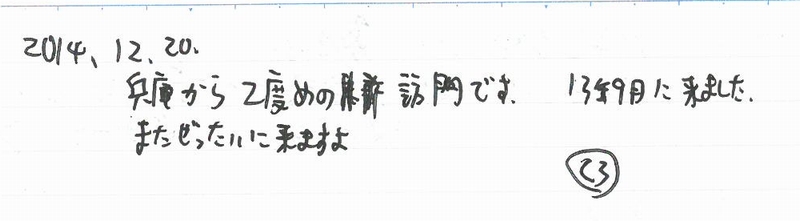 2014、12、20.
兵庫から2度めの 訪問です. 13年9月に来ました.
またぜったいに来ますよ